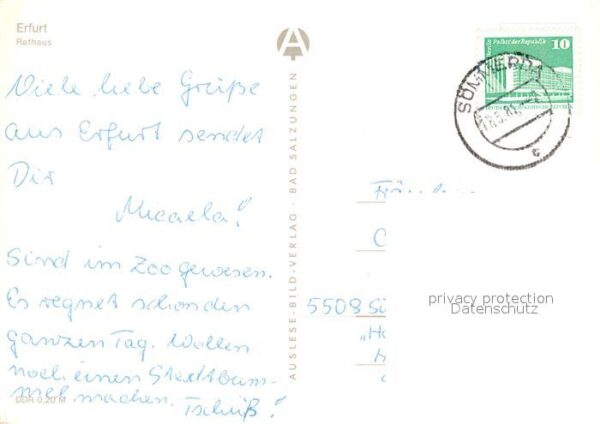 Erfurt
Rathaus
Viele liebe Grüße
aus Erfurt sendet
Dir
Micaela!
Sind im Zoo gewesen.
Es regnet schon den
ganzen Tag. Wollen
noch einen Stadtbum-
mel machen. Tschüß!
DDR 0,20 M
AUSLESE-BILD-VERLAG · BAD SALZUNGEN
Berlin, Palast der Republik 10
SÖMMERDA
c
5508
privacy protection
Datenschutz